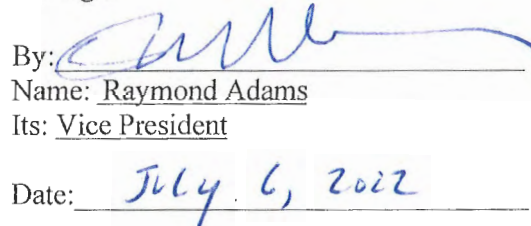 By:
Name: Raymond Adams
Its: Vice President
Date: July 6, 2022